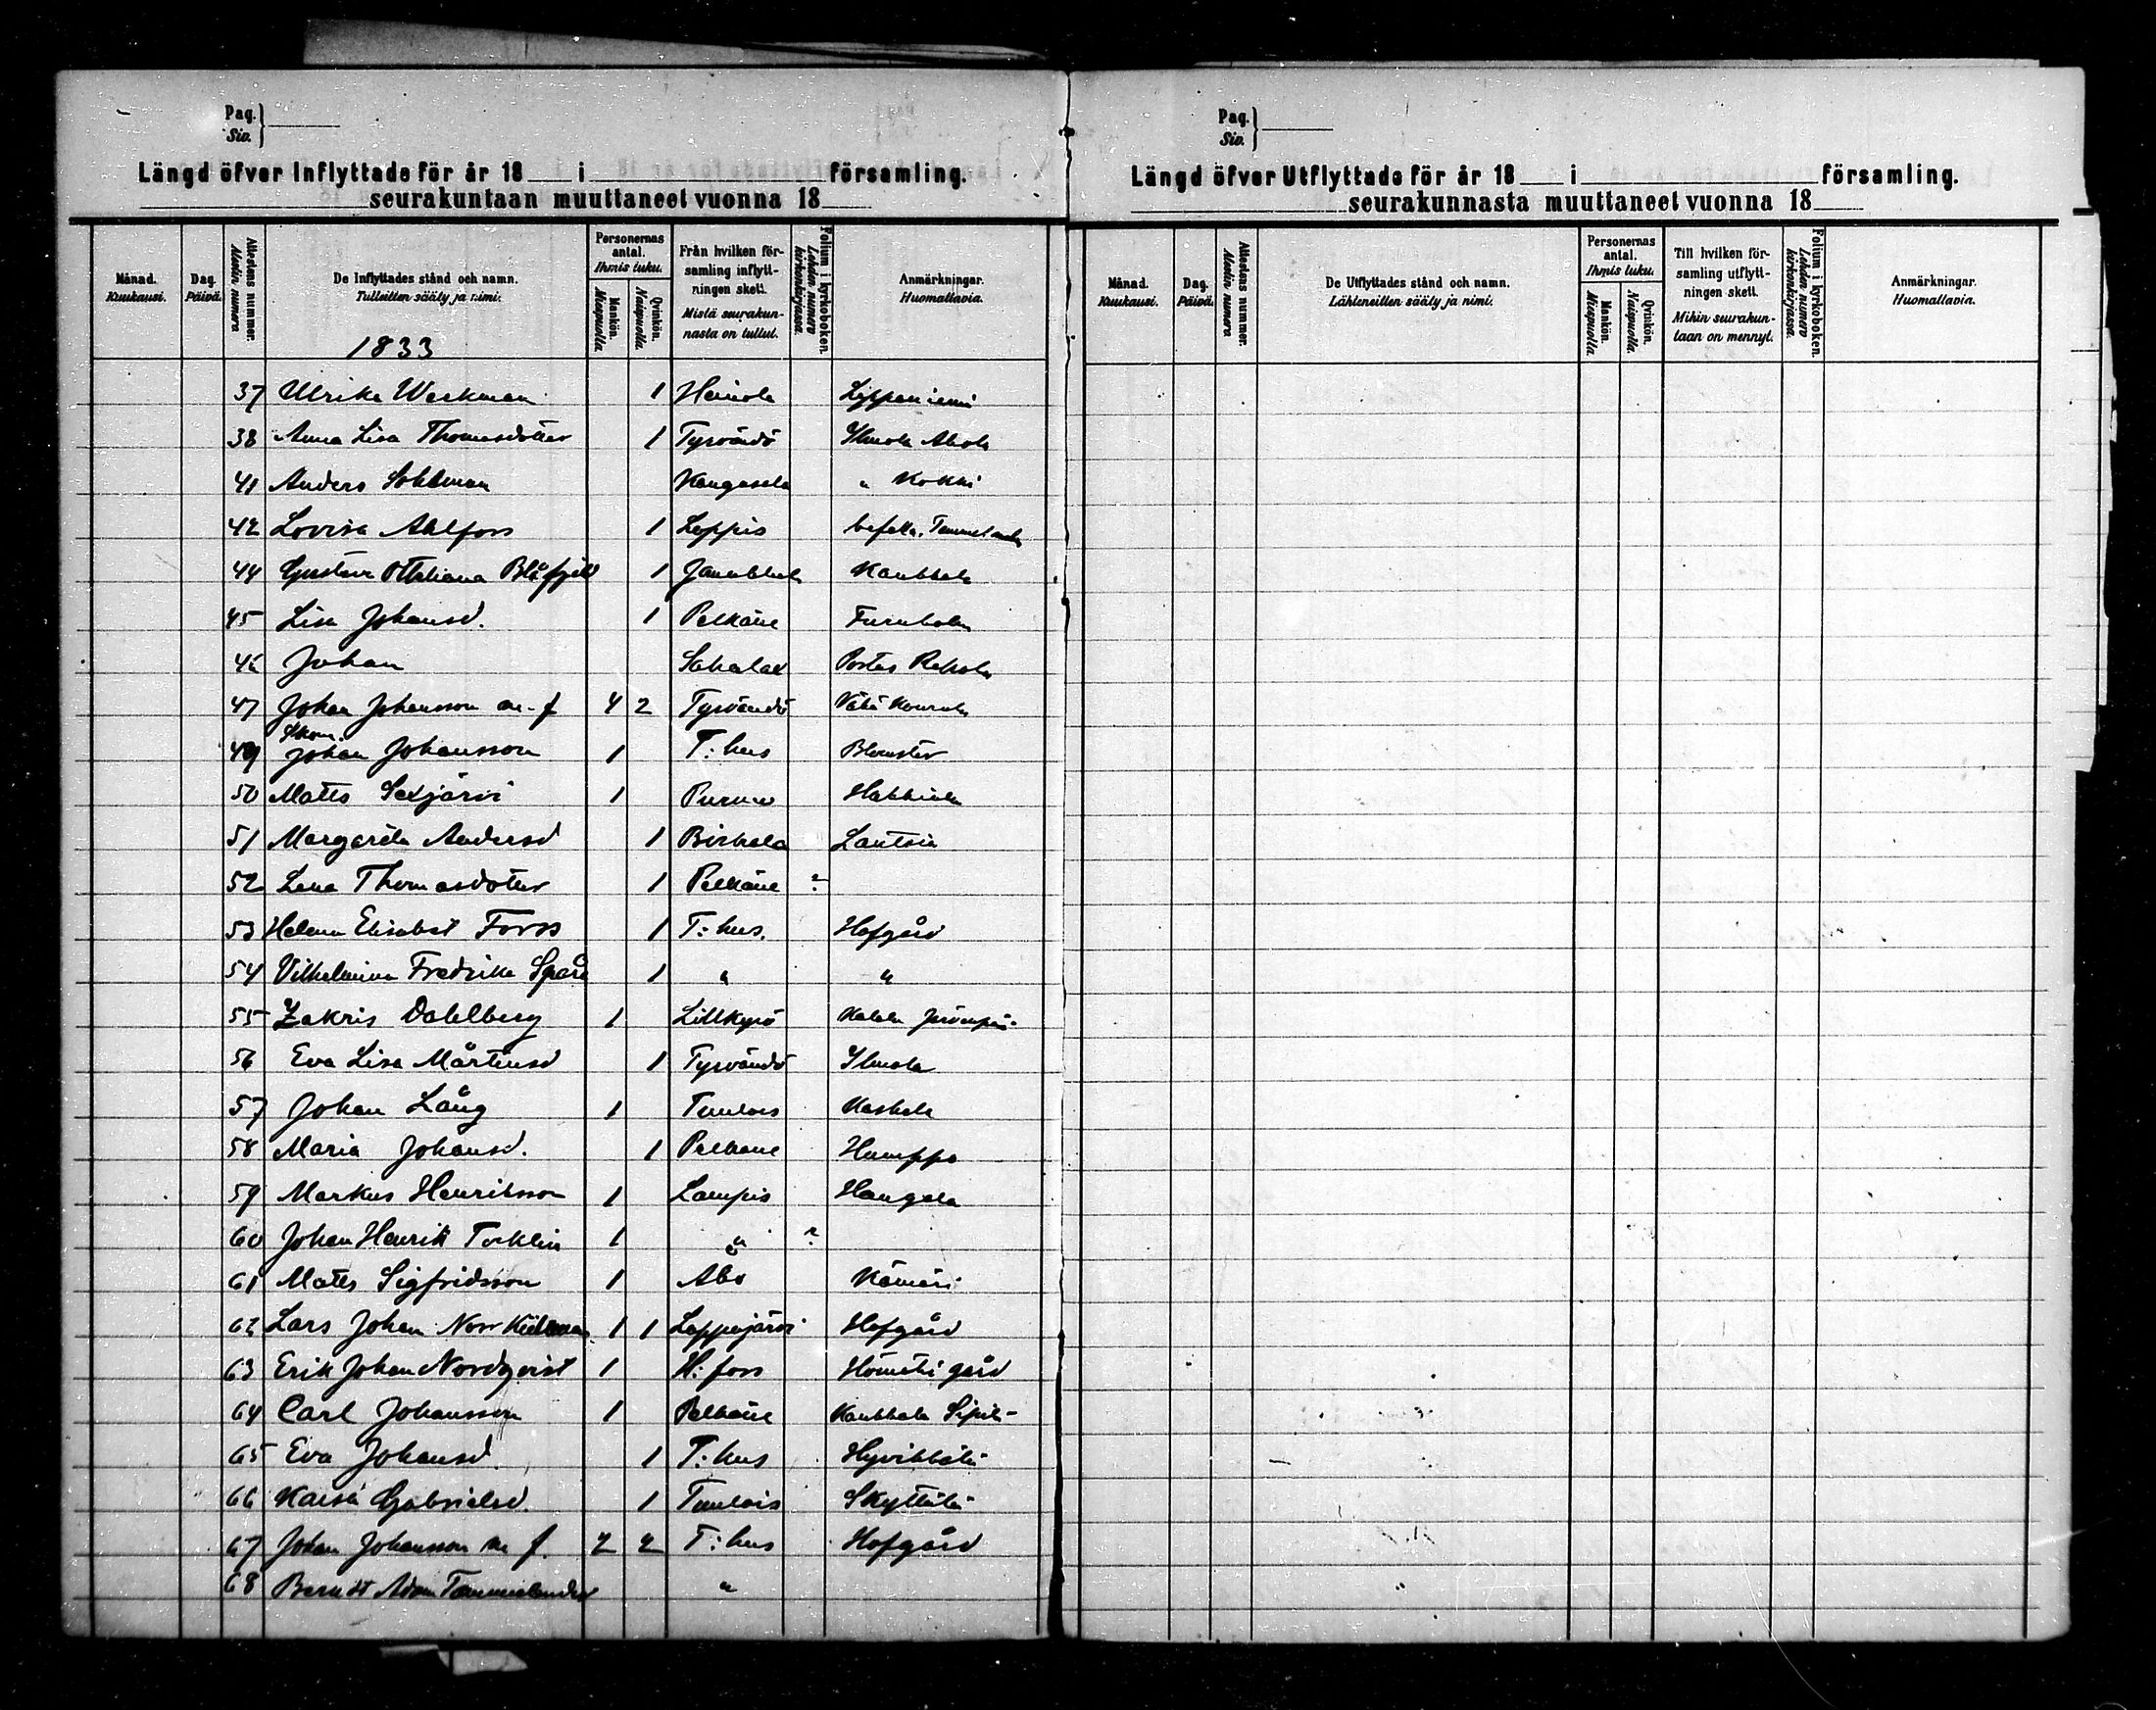 Pag.
Siv.
Längd öfver Inflyttade för år 18 i församling.
seurakuntaan muuttaneet vuonna 18
Månad.
Kuukausi.
Dag.
Päivä.
Attestens nummer.
Atestin numero
De Inflyttades stånd och namn.
Tulleitten sääty ja nimi.
1833
Personernas antal.
Ihmis luku.
Mankön.
Miespuolia
Qvinkön.
Naispuolia.
Från hvilken för-
samling inflytt-
ningen skett.
Mistä seurakun-
nasta on tullut.
Folium i kyrkoboken.
Lehden numero
kirkonkirjassa.
Anmärkningar.
Huomattavia.
37 Ulrika Werkman 1 Heinola Leppäniemi
38 Anna Lisa Thomasdotter 1 Tyrvändö Ilmola Ahola
41 Anders Sohlman Kangasala " Kokki
42 Lovisa Ahlfors 1 Loppis
44 Gustava Ottiliana Blåfjeld 1 Janakkala Kankkala
45 Lisa Johansd. 1 Pelkäne Furuholm
46 Johan Sahalax Portas Rekola
47 Johan Johansson m. f 4 2 Tyrvändö
49 Skom. Johan Johansson 1 T:hus Blomster
50 Matts Saxjärvi 1 Purmo
51 Margareta Andersd 1 Birkala Lautsia
52 Lena Thomasdotter 1 Pelkäne ?
53 Helena Elisabet Forss 1 T:hus. Hofgård
54 Vilhelmina Fredrika Spåra 1 " "
55 Zakris Dahlberg 1 Lillkyrö
56 Eva Lisa Mårtensd 1 Tyrvändö Ilmola
57 Johan Lång 1 Tuulois
58 Maria Johansd. 1 Pelkäne Humppo
59 Markus Henriksson 1 Lampis Haugala
60 Johan Henrik Torklin 1 " ?
61 Matts Sigfridsson 1 Åbo Kämäri
62 Lars Johan 1 1 Lappajärvi Hofgård
63 Erik Johan Nordqvist 1 H:fors gård
64 Carl Johansson 1 Pelkäne Kankkala
65 Eva Johansd. 1 T:hus Hyvikkälä
66 Kaisa Gabrielsd. 1 Tuulois Skyttälä
67 Johan Johansson m f. 2 2 T:hus Hofgård
68 Berndt Adam Tammelander "
Pag.
Siv.
Längd öfver Utflyttade för år 18 i församling.
seurakunnasta muuttaneet vuonna 18
Månad.
Kuukausi.
Dag.
Päivä.
Attestens nummer.
Atestin numero
De Utflyttades stånd och namn.
Lähteneitten sääty ja nimi.
Personernas antal.
Ihmis luku.
Mankön.
Miespuolia
Qvinkön.
Naispuolia.
Till hvilken för-
samling utflytt-
ningen skett.
Mihin seurakun-
taan on mennyt.
Folium i kyrkoboken.
Lehden numero
kirkonkirjassa.
Anmärkningar.
Huomattavia.